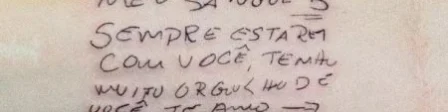 SEMPRE ESTAREI
COM VOCÊ, TENHO
MUITO ORGULHO DE
VOCÊ TE AMO →